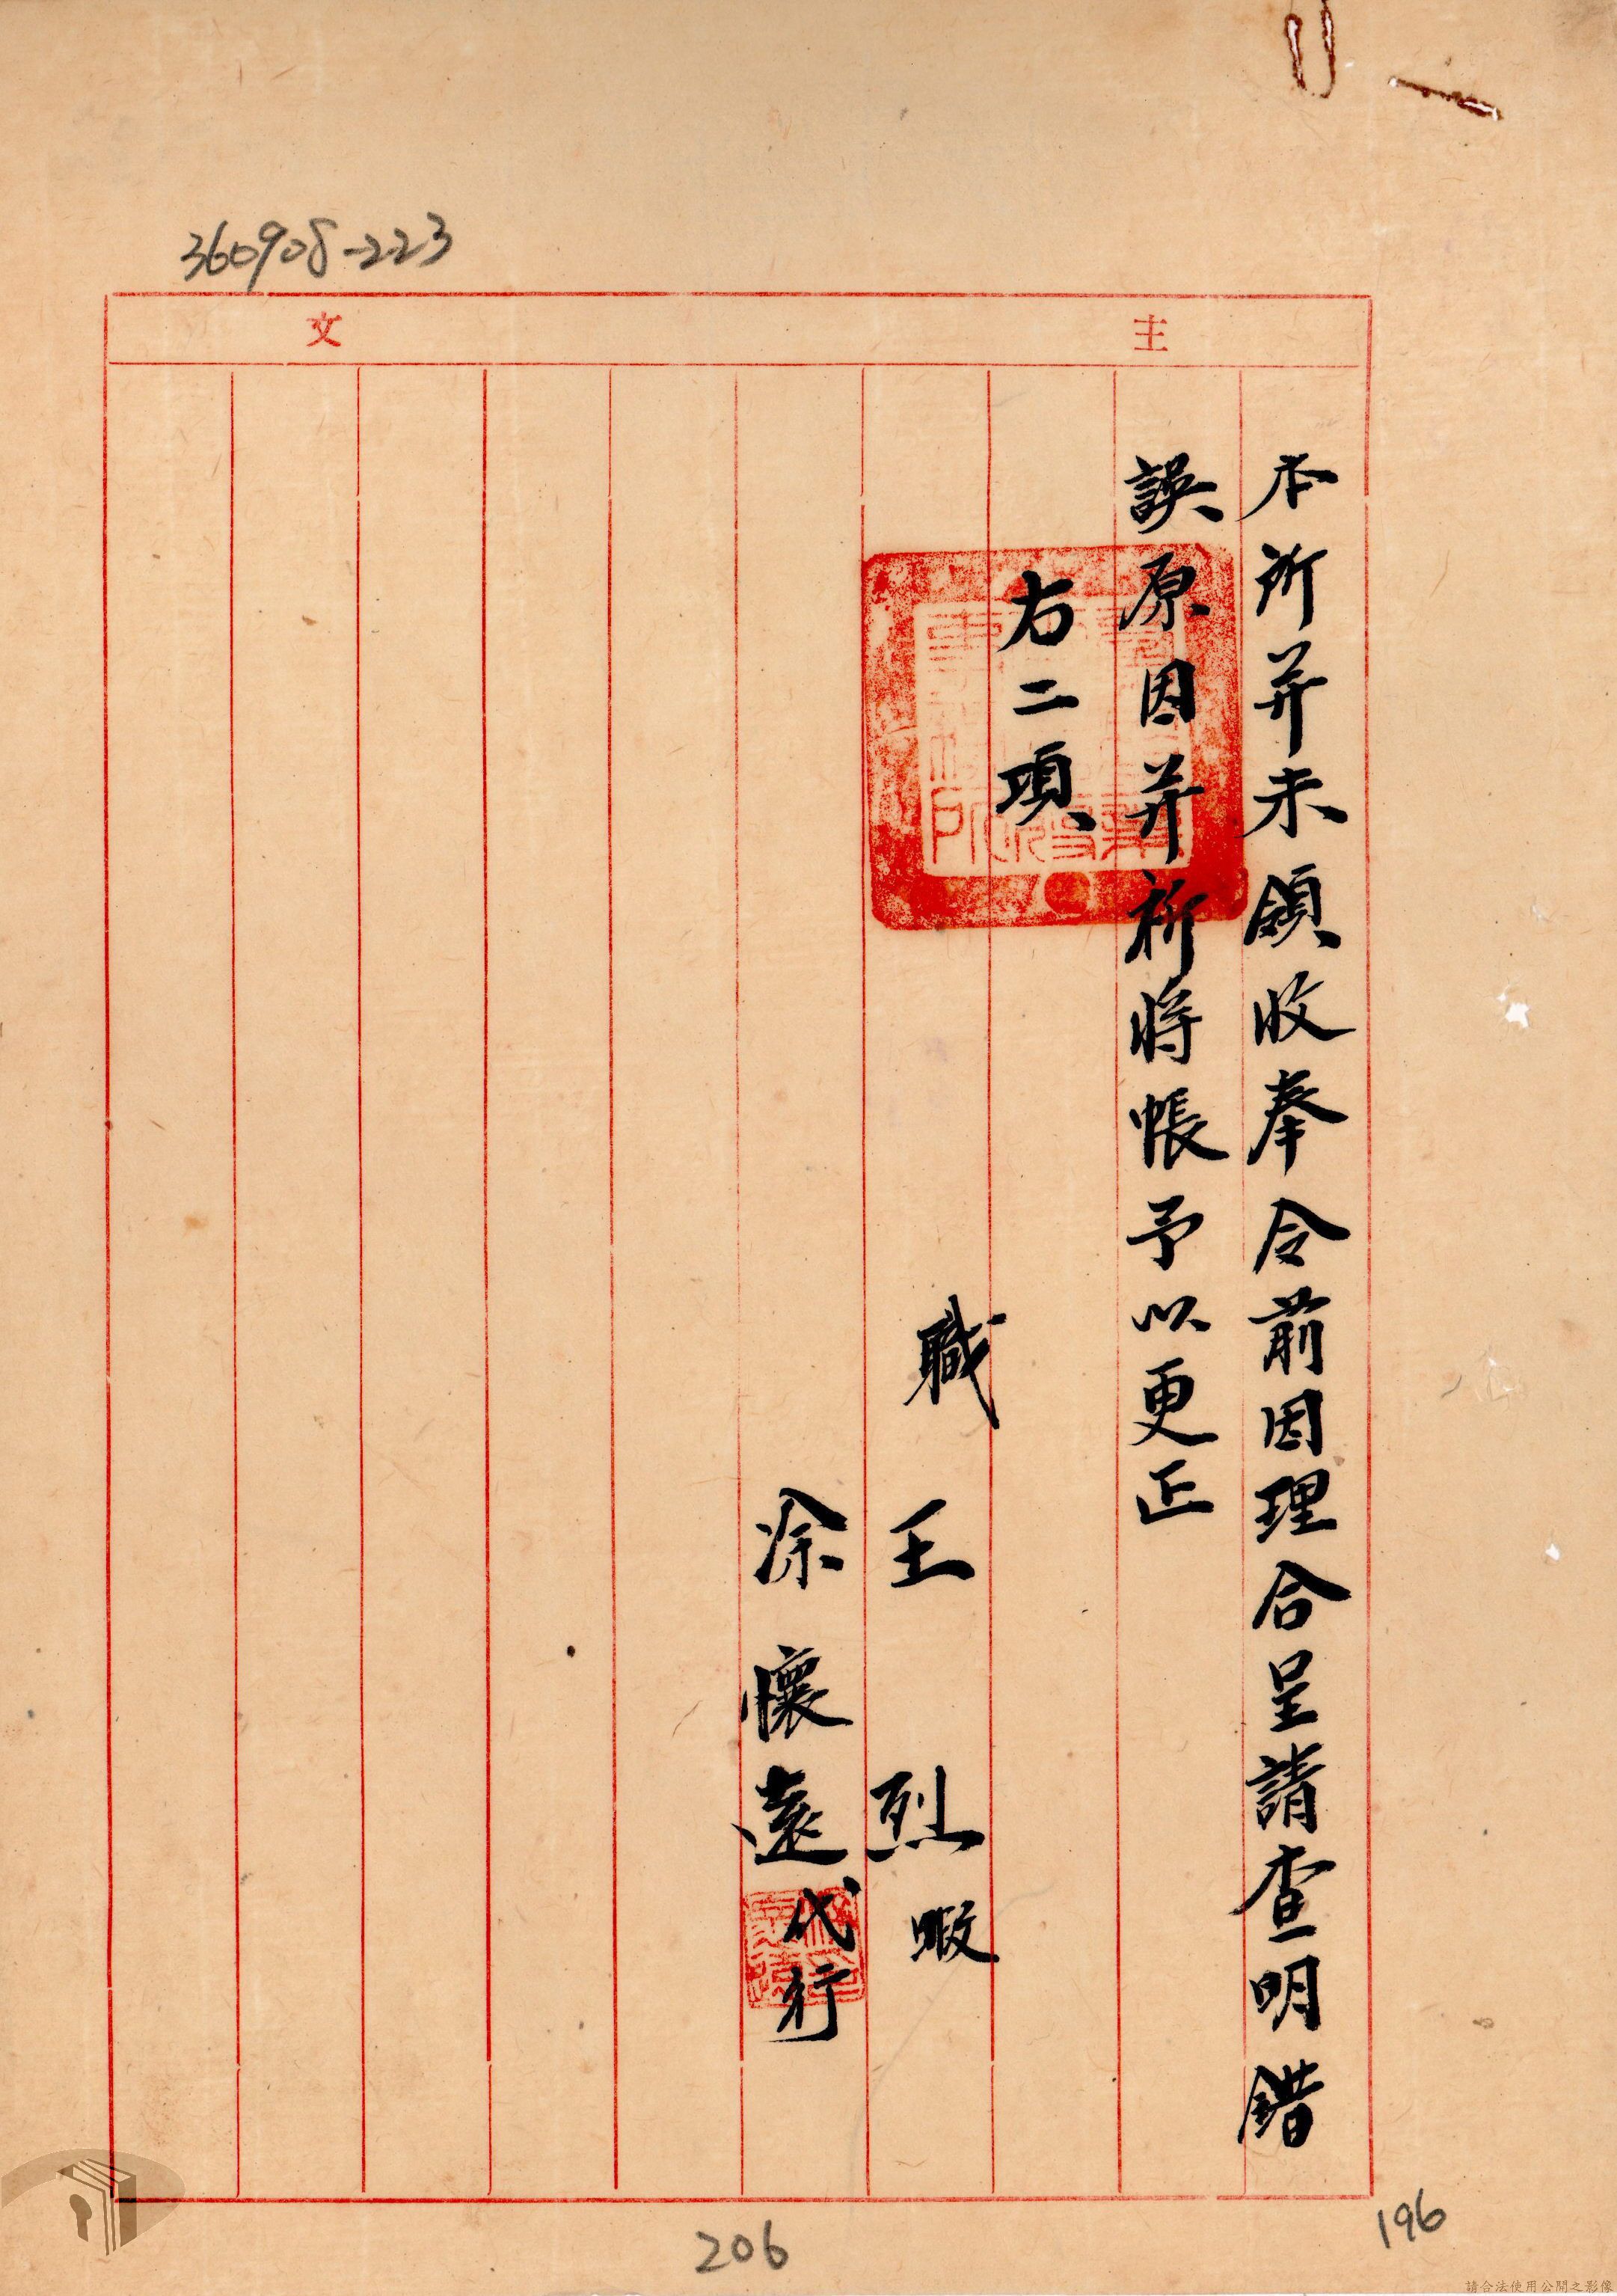 360908-223
主文
本所并未領收奉令前因理合呈請查明錯
誤原因并祈將帳予以更正
右二項
職王烈暇
涂懷遠代行
206
196
請合法使用公開之影像